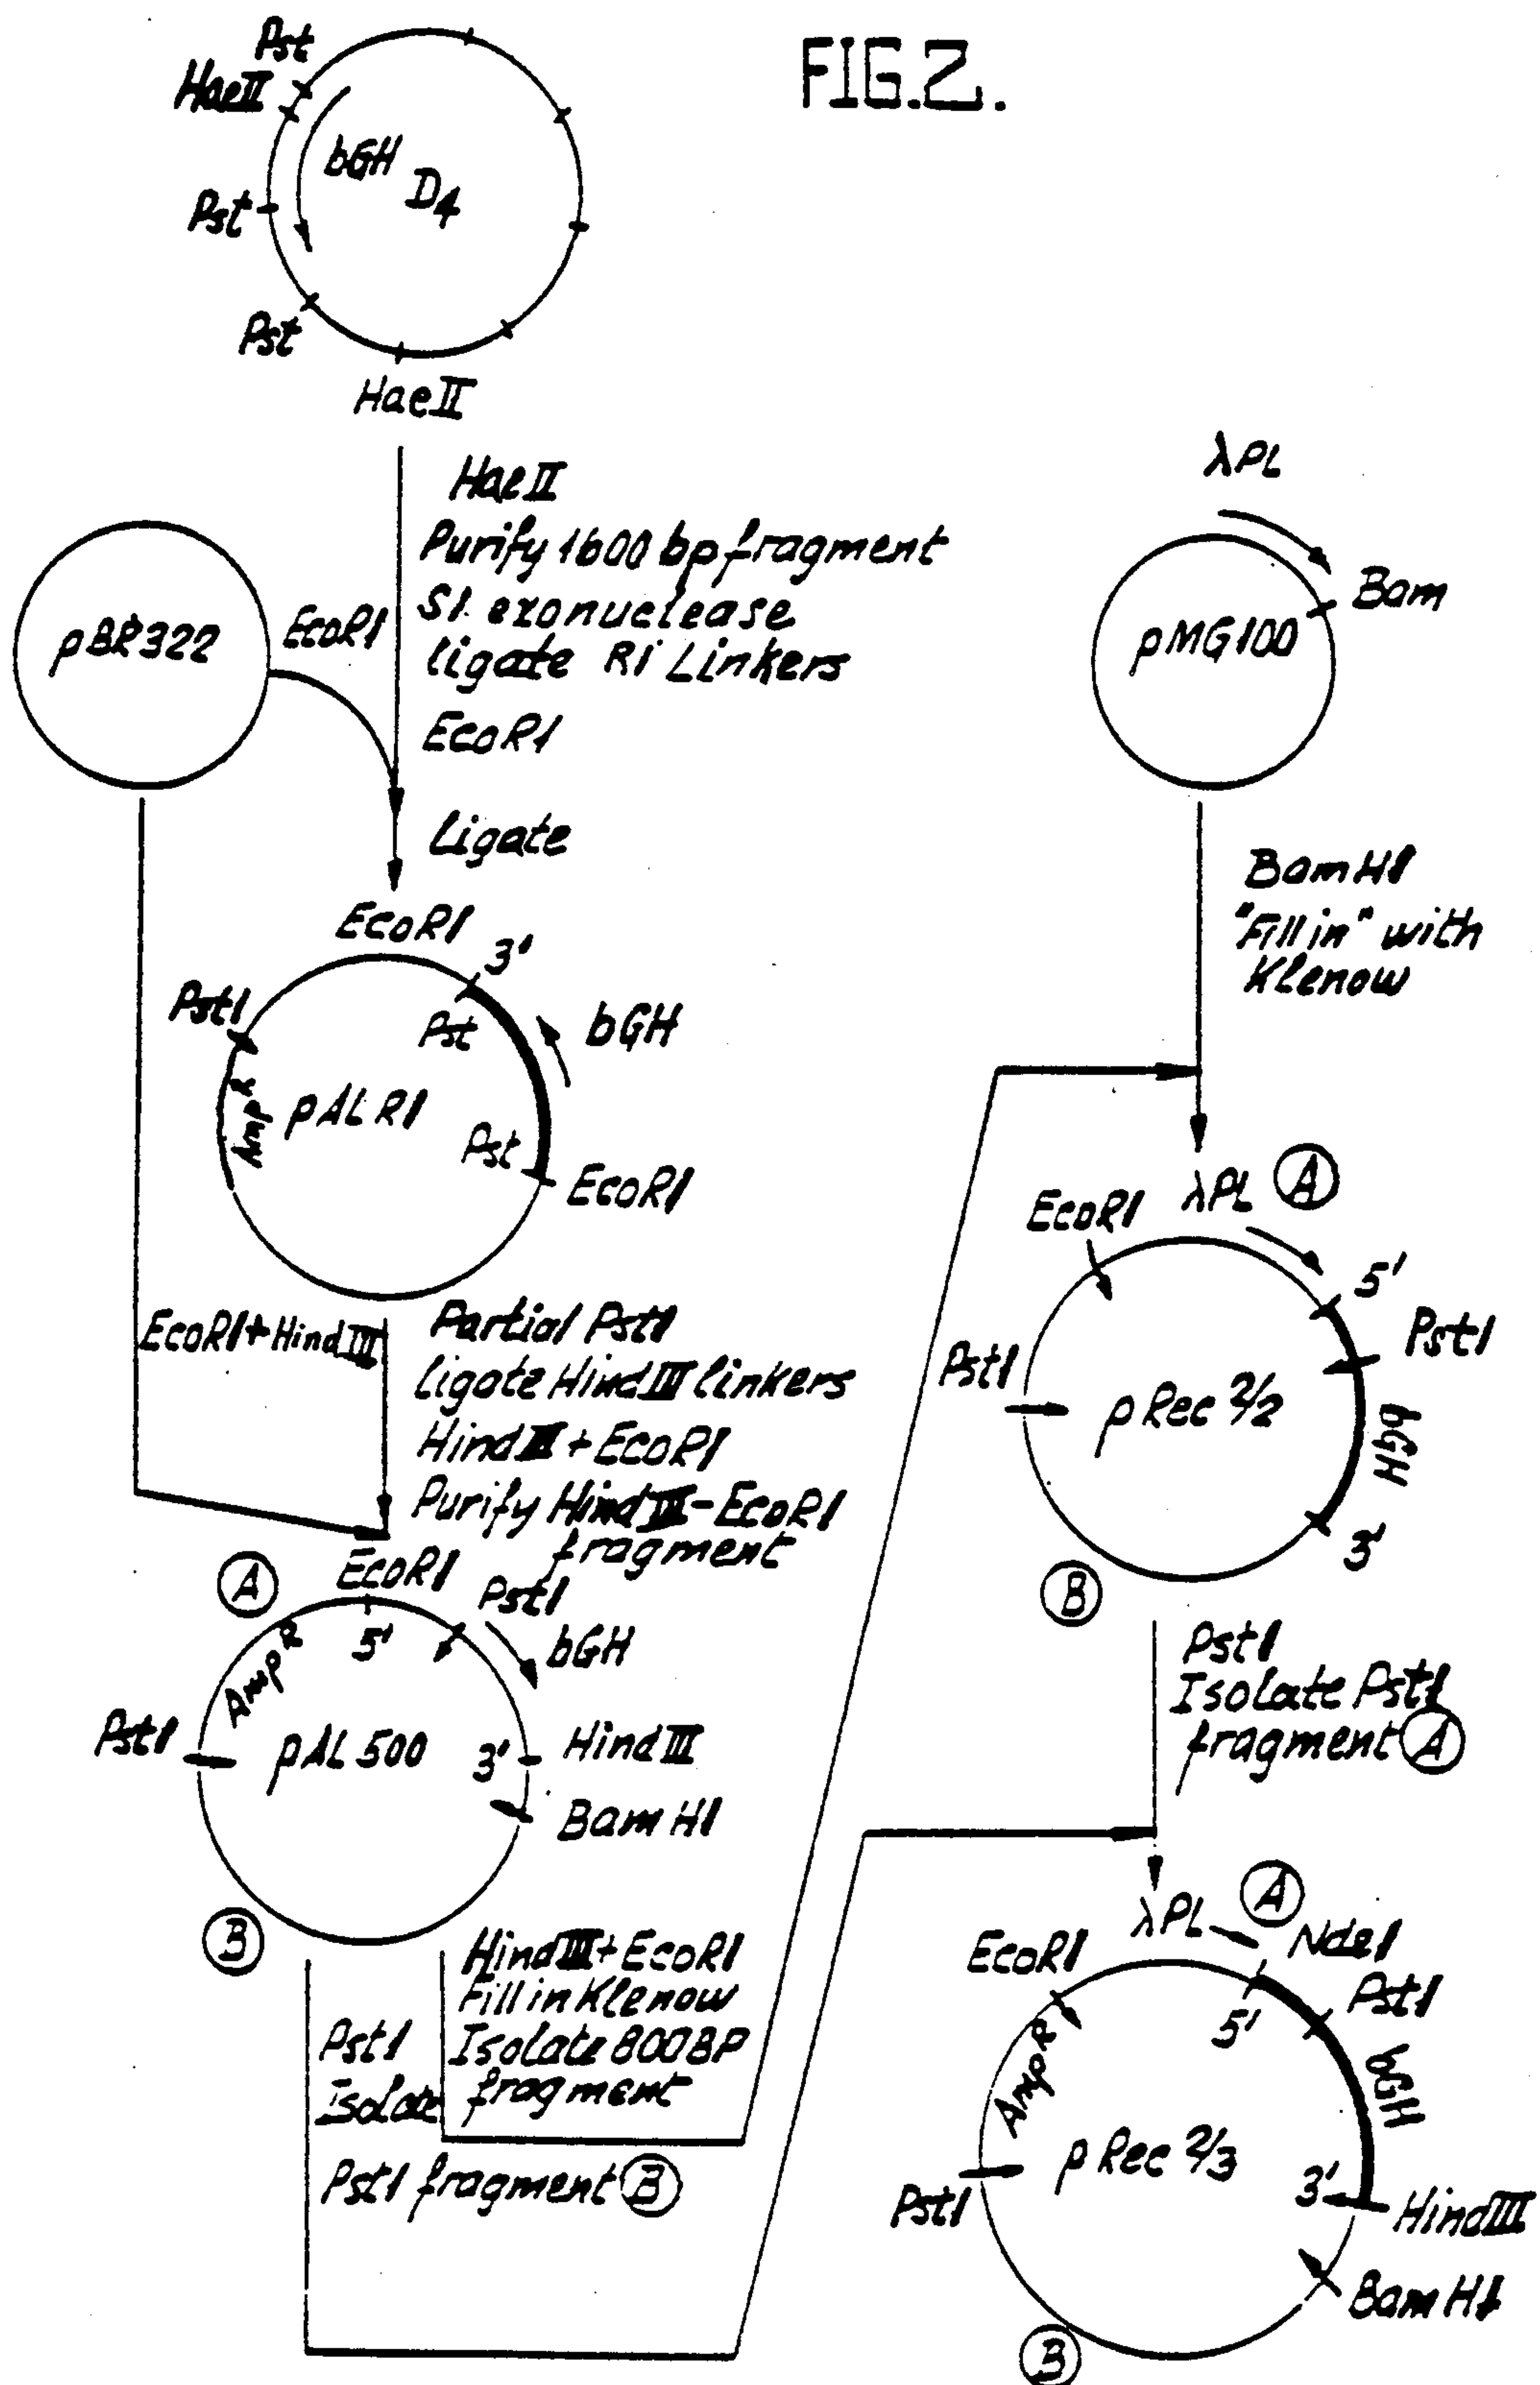 FIG.2.
Pst
HaeII
bGH
D4
Pst
Pst
HaeII
HaeII
Purify 1600 bp fragment
S1 exonuclease
ligate RI Linkers
EcoRI
pBR322
EcoRI
Ligate
λPL
Bam
pMG100
BamHI
"Fill in" with
Klenow
EcoRI
3'
PstI
Pst
bGH
AmpR
pALRI
Pst
EcoRI
EcoRI+HindIII
Partial PstI
Ligate HindIII linkers
HindIII+EcoRI
Purify HindIII-EcoRI
fragment
A
EcoRI
PstI
5'
bGH
AmpR
PstI
pAL500
3'
HindIII
BamHI
B
HindIII+EcoRI
Fill in Klenow
Isolate 800BP
fragment
PstI
Isolate
PstI fragment B
EcoRI
λPL
A
5'
PstI
PstI
pRec 2/2
bGH
3'
B
PstI
Isolate PstI
fragment A
λPL
A
NdeI
EcoRI
PstI
5'
AmpR
bGH
pRec 2/3
PstI
3'
HindIII
BamHI
B